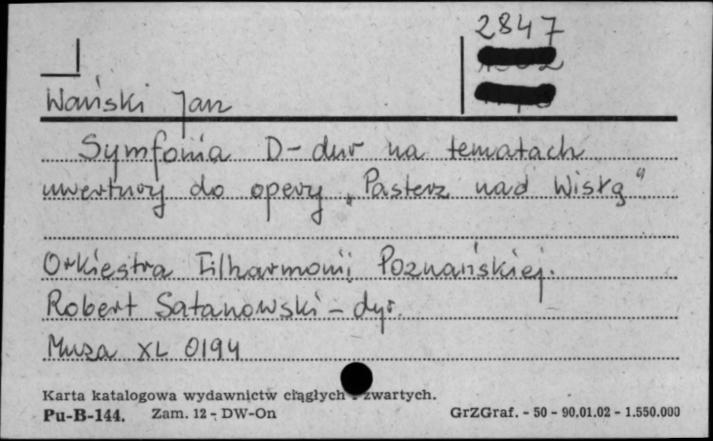 2847
Wański Jan
Symfonia D-dur na tematach
uwertury do opery „Pasterz nad Wisłą"
Orkiestra Filharmonii Poznańskiej.
Robert Satanowski - dyr.
Muza XL 0194
Karta katalogowa wydawnictw ciągłych i zwartych.
Pu-B-144. Zam. 12 - DW-On GrZGraf. - 50 - 90.01.02 - 1.550.000